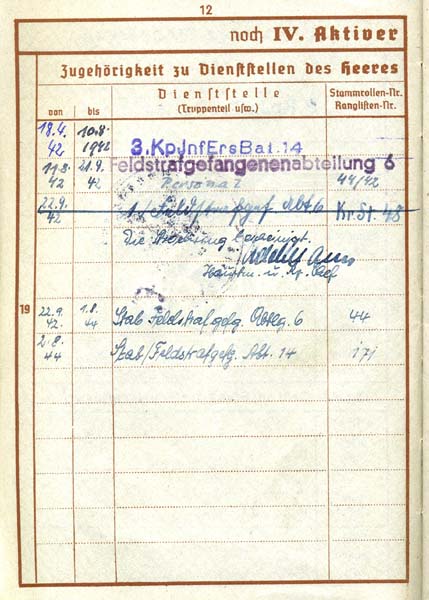 12
noch IV. Aktiver
Zugehörigkeit zu Dienststellen des Heeres
von bis Dienststelle (Truppenteil usw.) Stammrollen-Nr. Ranglisten-Nr.
18.4. 42 10.8. 1942 3.KpJnfErsBat.14
11.8. 42 21.9. 42 Feldstrafgefangenenabteilung 6
Personal 44/42
22.9. 42 Feldstrfgnf. Abt. 6 Kr.St. 48
Die Streichung bescheinigt
Hauptm. u. Kp. Chef
19
22.9. 42. 1.8. 44 Stab Feldstrafgefg. Abtlg. 6 44
2.8. 44 Stab/Feldstrafgefg. Abt. 14